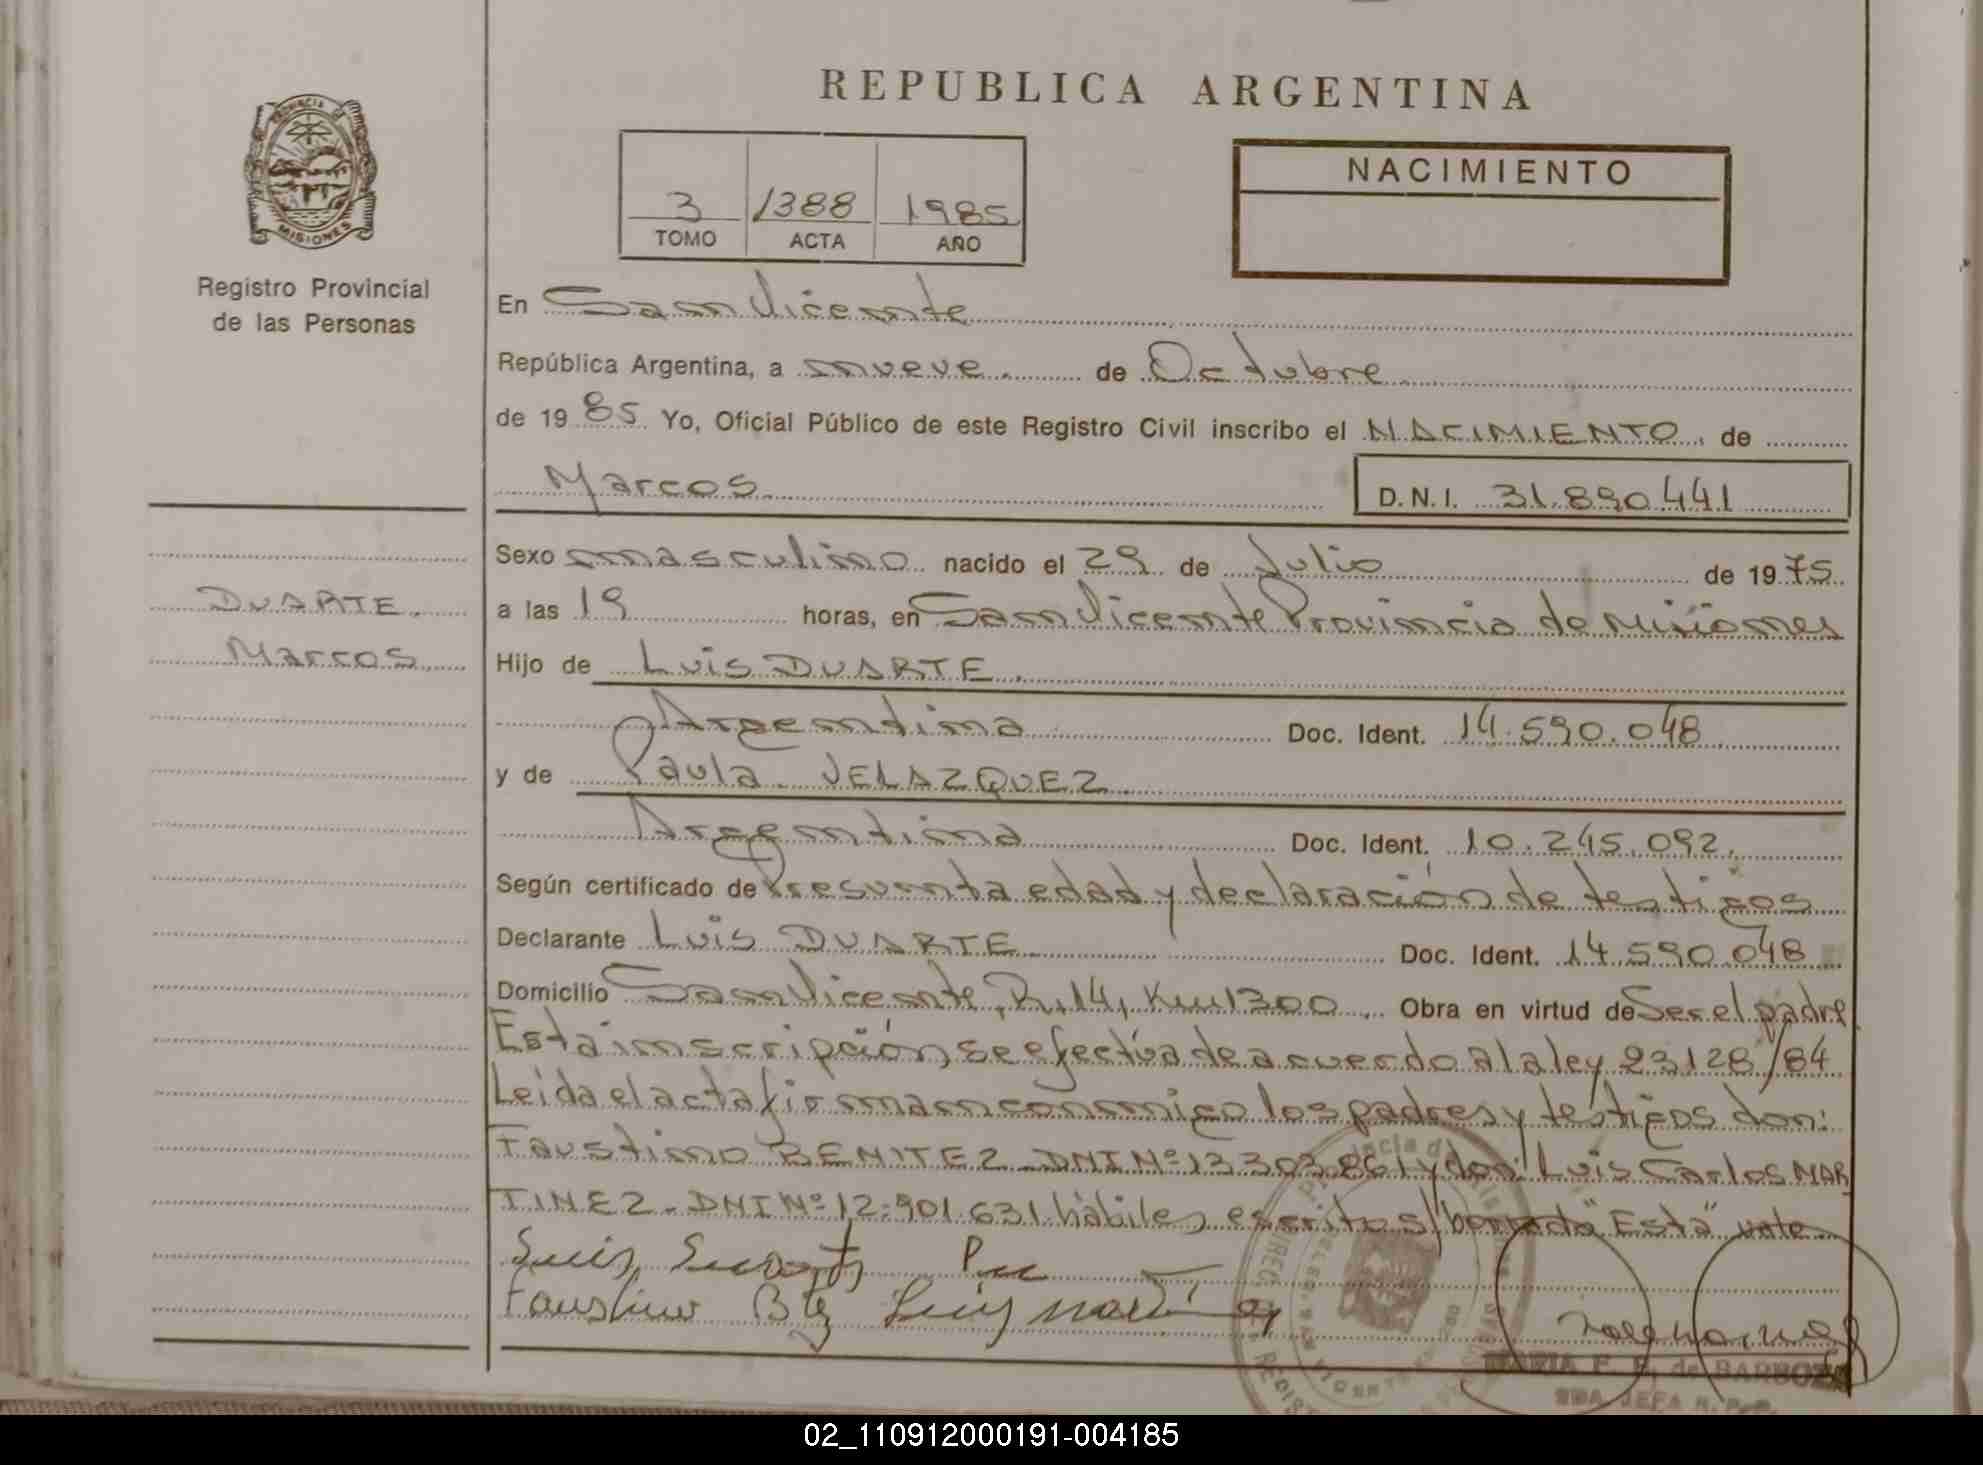 REPUBLICA ARGENTINA
PROVINCIA
MISIONES
Registro Provincial
de las Personas
3 1388 1985
TOMO ACTA AÑO
NACIMIENTO
En San Vicente
República Argentina, a nueve de Octubre
de 1985 Yo, Oficial Público de este Registro Civil inscribo el NACIMIENTO de
Marcos D.N.I. 31.890.441
DUARTE
Marcos
Sexo masculino nacido el 29 de Julio de 1975
a las 19 horas, en San Vicente Provincia de Misiones
Hijo de Luis DUARTE
Argentina Doc. Ident. 14.590.048
y de Paula VELAZQUEZ
Argentina Doc. Ident. 10.245.092.
Según certificado de Presunta edad y declaración de testigos
Declarante Luis DUARTE Doc. Ident. 14.590.048
Domicilio San Vicente, R. 14, Km 1300 Obra en virtud de Ser el padre
Esta inscripción, se efectúa de acuerdo a la ley 23128/84
Leída el acta firman conmigo los padres y testigos don:
Faustino BENITEZ DNI Nº 13.303.861 y don: Luis Carlos MAR
TINEZ. DNI Nº 12.901.631 hábiles, escrito s/borrado "Esta" vale
Luis Duarte
Faustino Btez Luis Martinez
MARIA F. de BARBOZA
JEFA R.P.P.
02_110912000191-004185